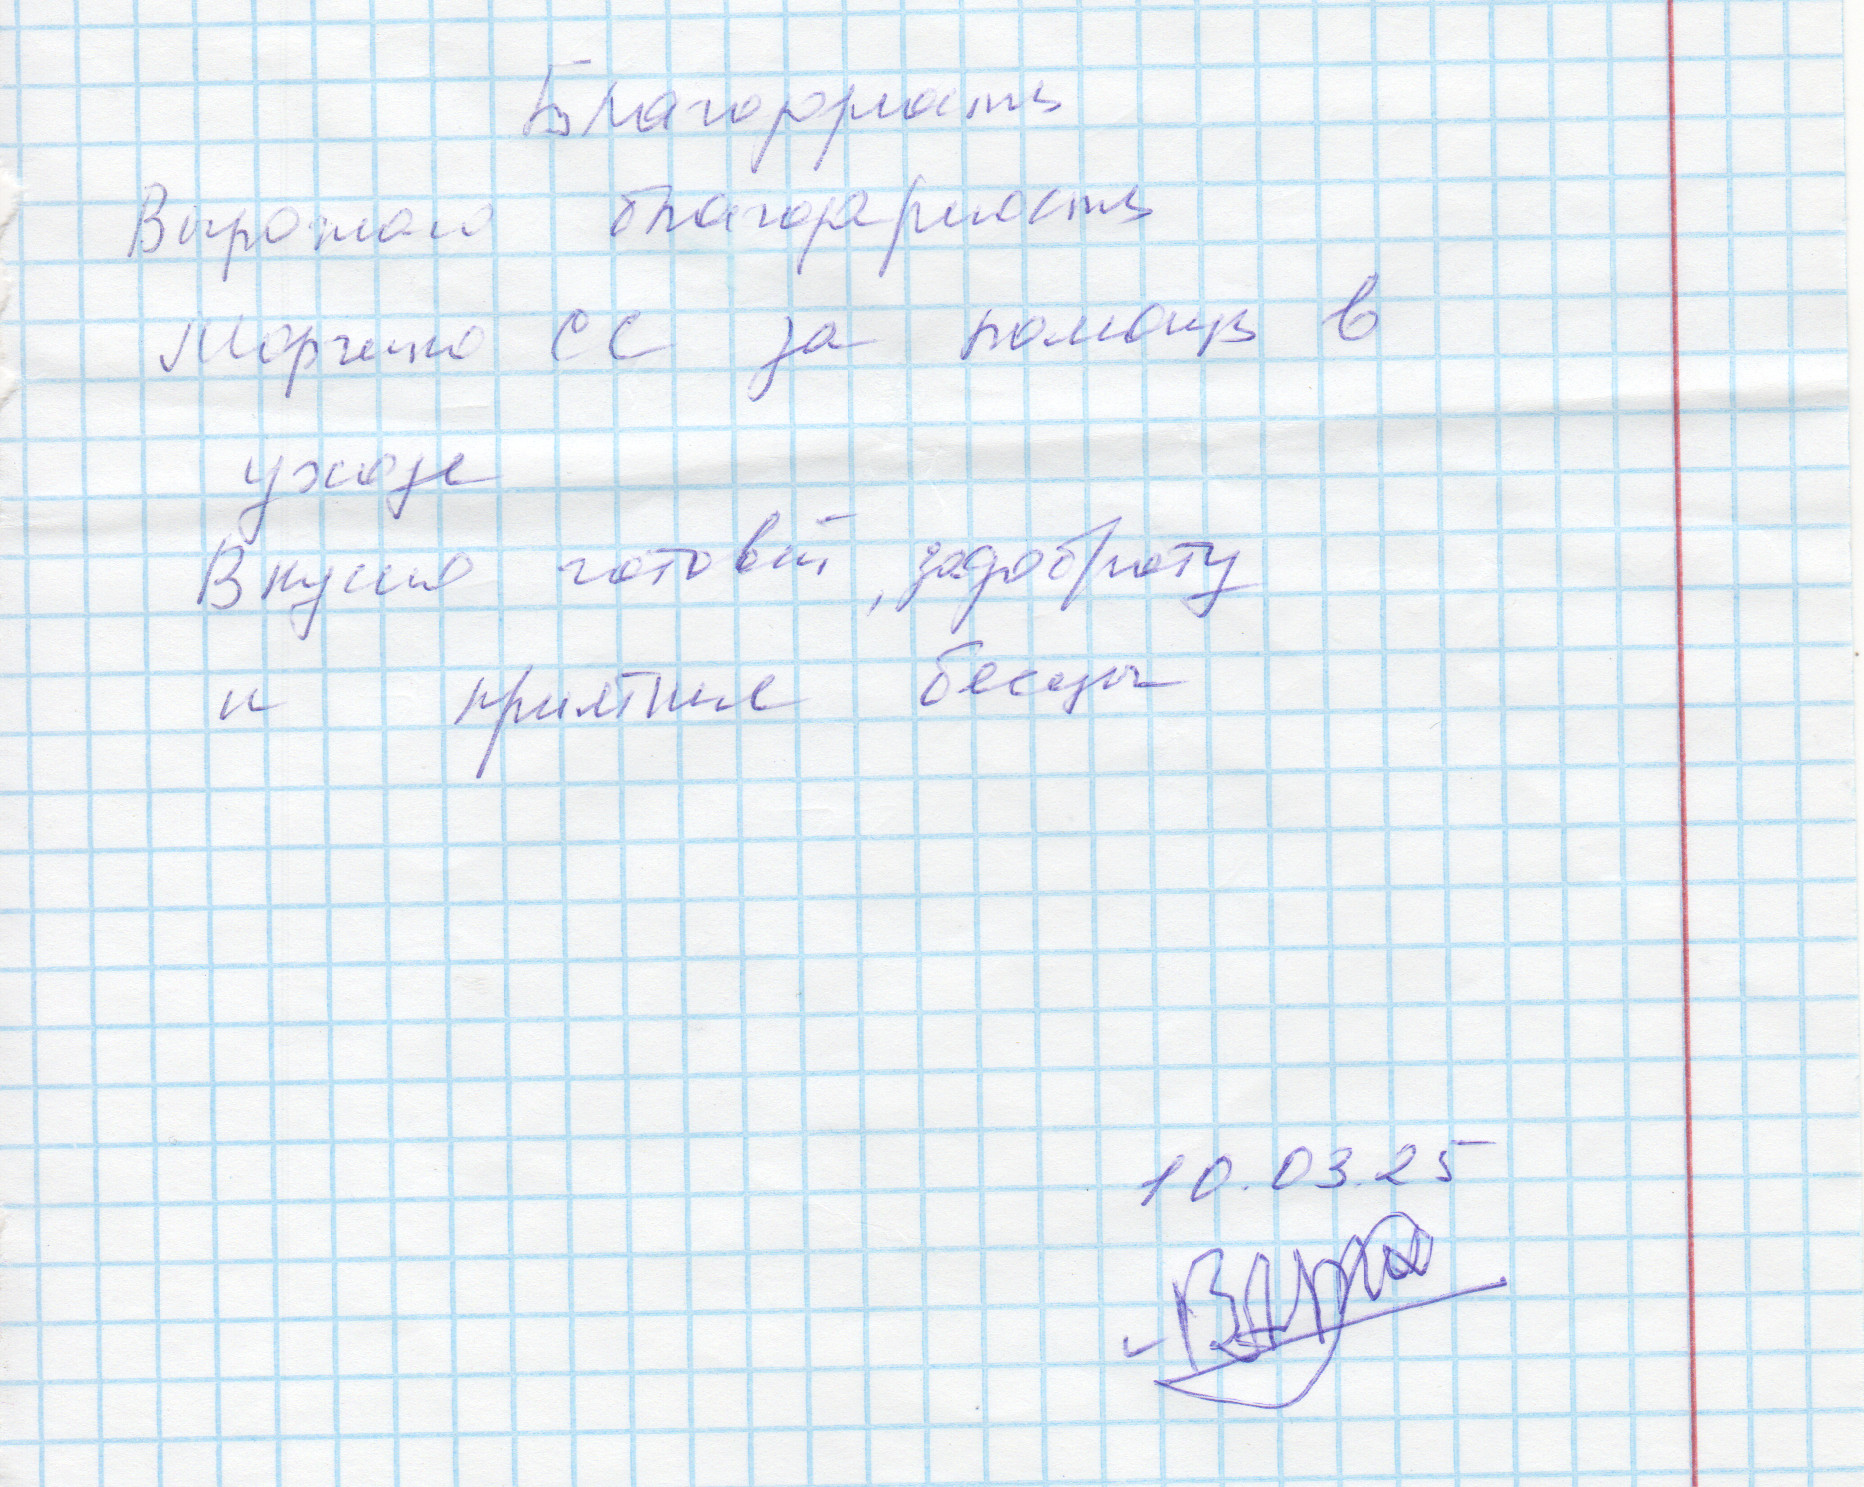 Благодрность
Выражаю благодарность
Марченко СС за помощь в
уходе
Вкусно готовит, задоброту
и приятные беседы
10.03.25